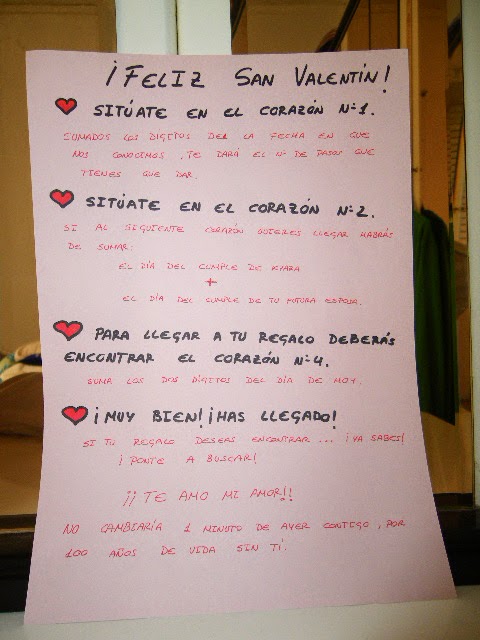 ¡FELIZ SAN VALENTÍN!
SITÚATE EN EL CORAZÓN Nº1.
SUMADOS LOS DIGITOS DER LA FECHA EN QUE
NOS CONOCIMOS, TE DARÁ EL Nº DE PASOS QUE
TIENES QUE DAR.
SITÚATE EN EL CORAZÓN Nº2.
SI AL SIGUIENTE CORAZÓN QUIERES LLEGAR HABRÁS
DE SUMAR:
EL DÍA DEL CUMPLE DE KYARA
+
EL DÍA DEL CUMPLE DE TU FUTURA ESPOSA.
PARA LLEGAR A TU REGALO DEBERÁS
ENCONTRAR EL CORAZÓN Nº4.
SUMA LOS DOS DÍGITOS DEL DÍA DE HOY.
¡MUY BIEN! ¡HAS LLEGADO!
SI TU REGALO DESEAS ENCONTRAR... ¡YA SABES!
¡PONTE A BUSCAR!
¡¡TE AMO MI AMOR!!
NO CAMBIARÍA 1 MINUTO DE AYER CONTIGO, POR
100 AÑOS DE VIDA SIN TÍ.